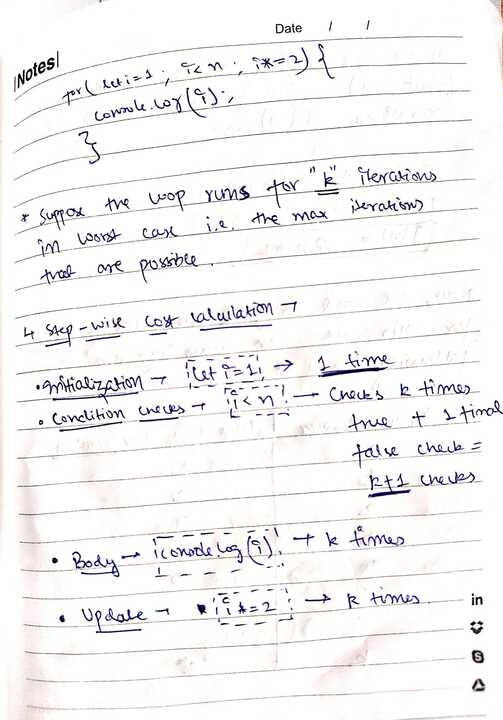 Date / /
|Notes|
for( let i=1 ; i<n ; i*=2) {
console.log(i);
}
* Suppose the loop runs for "k" iterations
in worst case i.e. the max iterations
that are possible.
↳ Step-wise cost calculation →
• initialization → let i=1; → 1 time
• Condition checks → i<n → Checks k times
true + 1 final
false check =
k+1 checks
• Body → console.log(i); → k times
• Update → i*=2 → k times
in